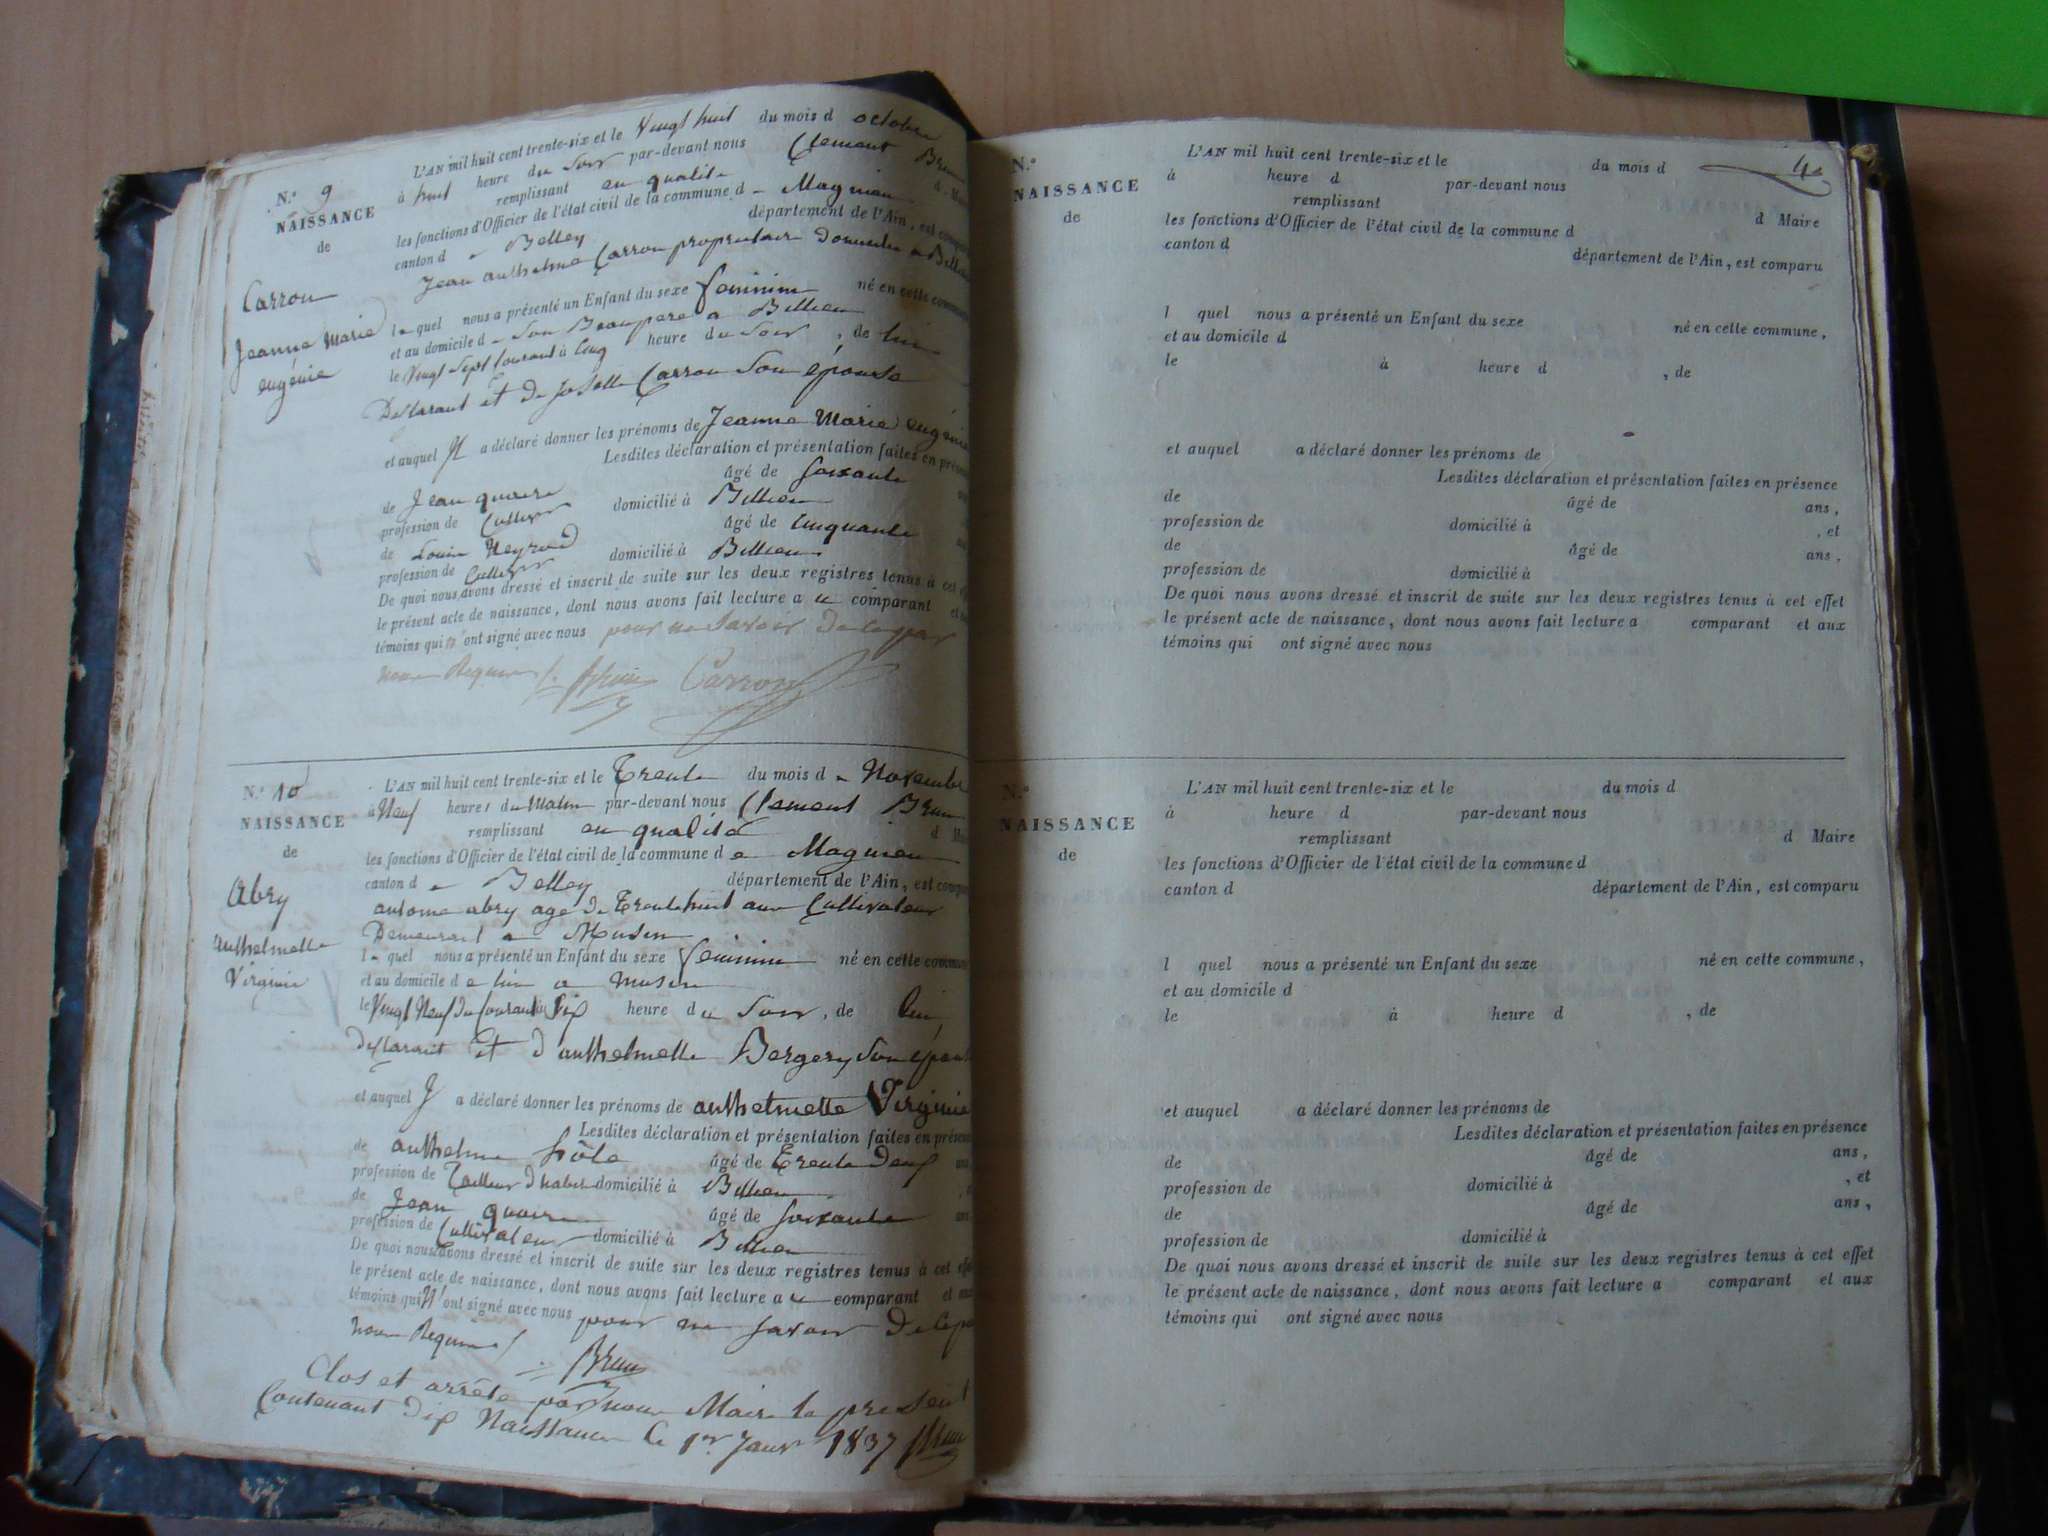 N.° 9
NAISSANCE
de
Carron
Jeanne Marie
eugénie
L'AN mil huit cent trente-six et le Vingt huit du mois d octobre
à huit heure du Soir par-devant nous Clement Brun
remplissant en qualité d Maire
les fonctions d'Officier de l'état civil de la commune d e Magnieu
canton d e Belley département de l'Ain, est comparu
Jean anthelme Carron proprietaire Domicilie a
l e quel nous a présenté un Enfant du sexe feminin né en cette commune
et au domicile d e Son Beaupere a Billieu
le Vingt Sept Courant à Cinq heure du Soir, de lui
Declarant et de Carron Son épouse
et auquel Il a déclaré donner les prénoms de Jeanne Marie eugénie
Lesdites déclaration et présentation faites en présence
de Jean quaire âgé de Soixante
profession de domicilié à Billieu
de Louis Neyroud âgé de Cinquante
profession de domicilié à Billieu
De quoi nous avons dressé et inscrit de suite sur les deux registres tenus à cet
le présent acte de naissance, dont nous avons fait lecture a u comparant et
témoins qui n'ont signé avec nous pour ne Savoir De ce par
nous Requis Brun Carron
N.° 10
NAISSANCE
de
Abry
anthelmette
Virginie
L'AN mil huit cent trente-six et le Trente du mois d e Novembre
à Neuf heures du Matin par-devant nous Clement Brun
remplissant en qualité d
les fonctions d'Officier de l'état civil de la commune d e Magnieu
canton d e Belley département de l'Ain, est comparu
antoine abry age de Trente huit ans Cultivateur
Demeurant a Musin
l e quel nous a présenté un Enfant du sexe feminin né en cette commune
et au domicile d e lui a musin
le Vingt Neuf du Courant à Six heure d u Soir, de lui,
declarant Et d'anthelmette Bergery Son épouse
et auquel Il a déclaré donner les prénoms de anthelmette Virginie
Lesdites déclaration et présentation faites en présence
de anthelme hôte âgé de Trente Deux
profession de Tailleur d'habit domicilié à Billieu
de Jean quaire âgé de Soixante
profession de Cultivateur domicilié à Billieu
De quoi nous avons dressé et inscrit de suite sur les deux registres tenus à cet
le présent acte de naissance, dont nous avons fait lecture a u comparant et aux
témoins qui N'ont signé avec nous pour ne Savoir De ce
nous Requis Brun
Clos et arrêté par nous Maire le present
Contenant Dix Naissances le 1er Janv 1837 Brun
4
N.°
NAISSANCE
de
L'AN mil huit cent trente-six et le du mois d
à heure d par-devant nous
remplissant d Maire
les fonctions d'Officier de l'état civil de la commune d
canton d département de l'Ain, est comparu
l quel nous a présenté un Enfant du sexe né en cette commune,
et au domicile d
le à heure d , de
et auquel a déclaré donner les prénoms de
Lesdites déclaration et présentation faites en présence
de âgé de ans,
profession de domicilié à , et
de âgé de ans,
profession de domicilié à
De quoi nous avons dressé et inscrit de suite sur les deux registres tenus à cet effet
le présent acte de naissance, dont nous avons fait lecture a comparant et aux
témoins qui ont signé avec nous
N.°
NAISSANCE
de
L'AN mil huit cent trente-six et le du mois d
à heure d par-devant nous
remplissant d Maire
les fonctions d'Officier de l'état civil de la commune d
canton d département de l'Ain, est comparu
l quel nous a présenté un Enfant du sexe né en cette commune,
et au domicile d
le à heure d , de
et auquel a déclaré donner les prénoms de
Lesdites déclaration et présentation faites en présence
de âgé de ans,
profession de domicilié à , et
de âgé de ans,
profession de domicilié à
De quoi nous avons dressé et inscrit de suite sur les deux registres tenus à cet effet
le présent acte de naissance, dont nous avons fait lecture a comparant et aux
témoins qui ont signé avec nous